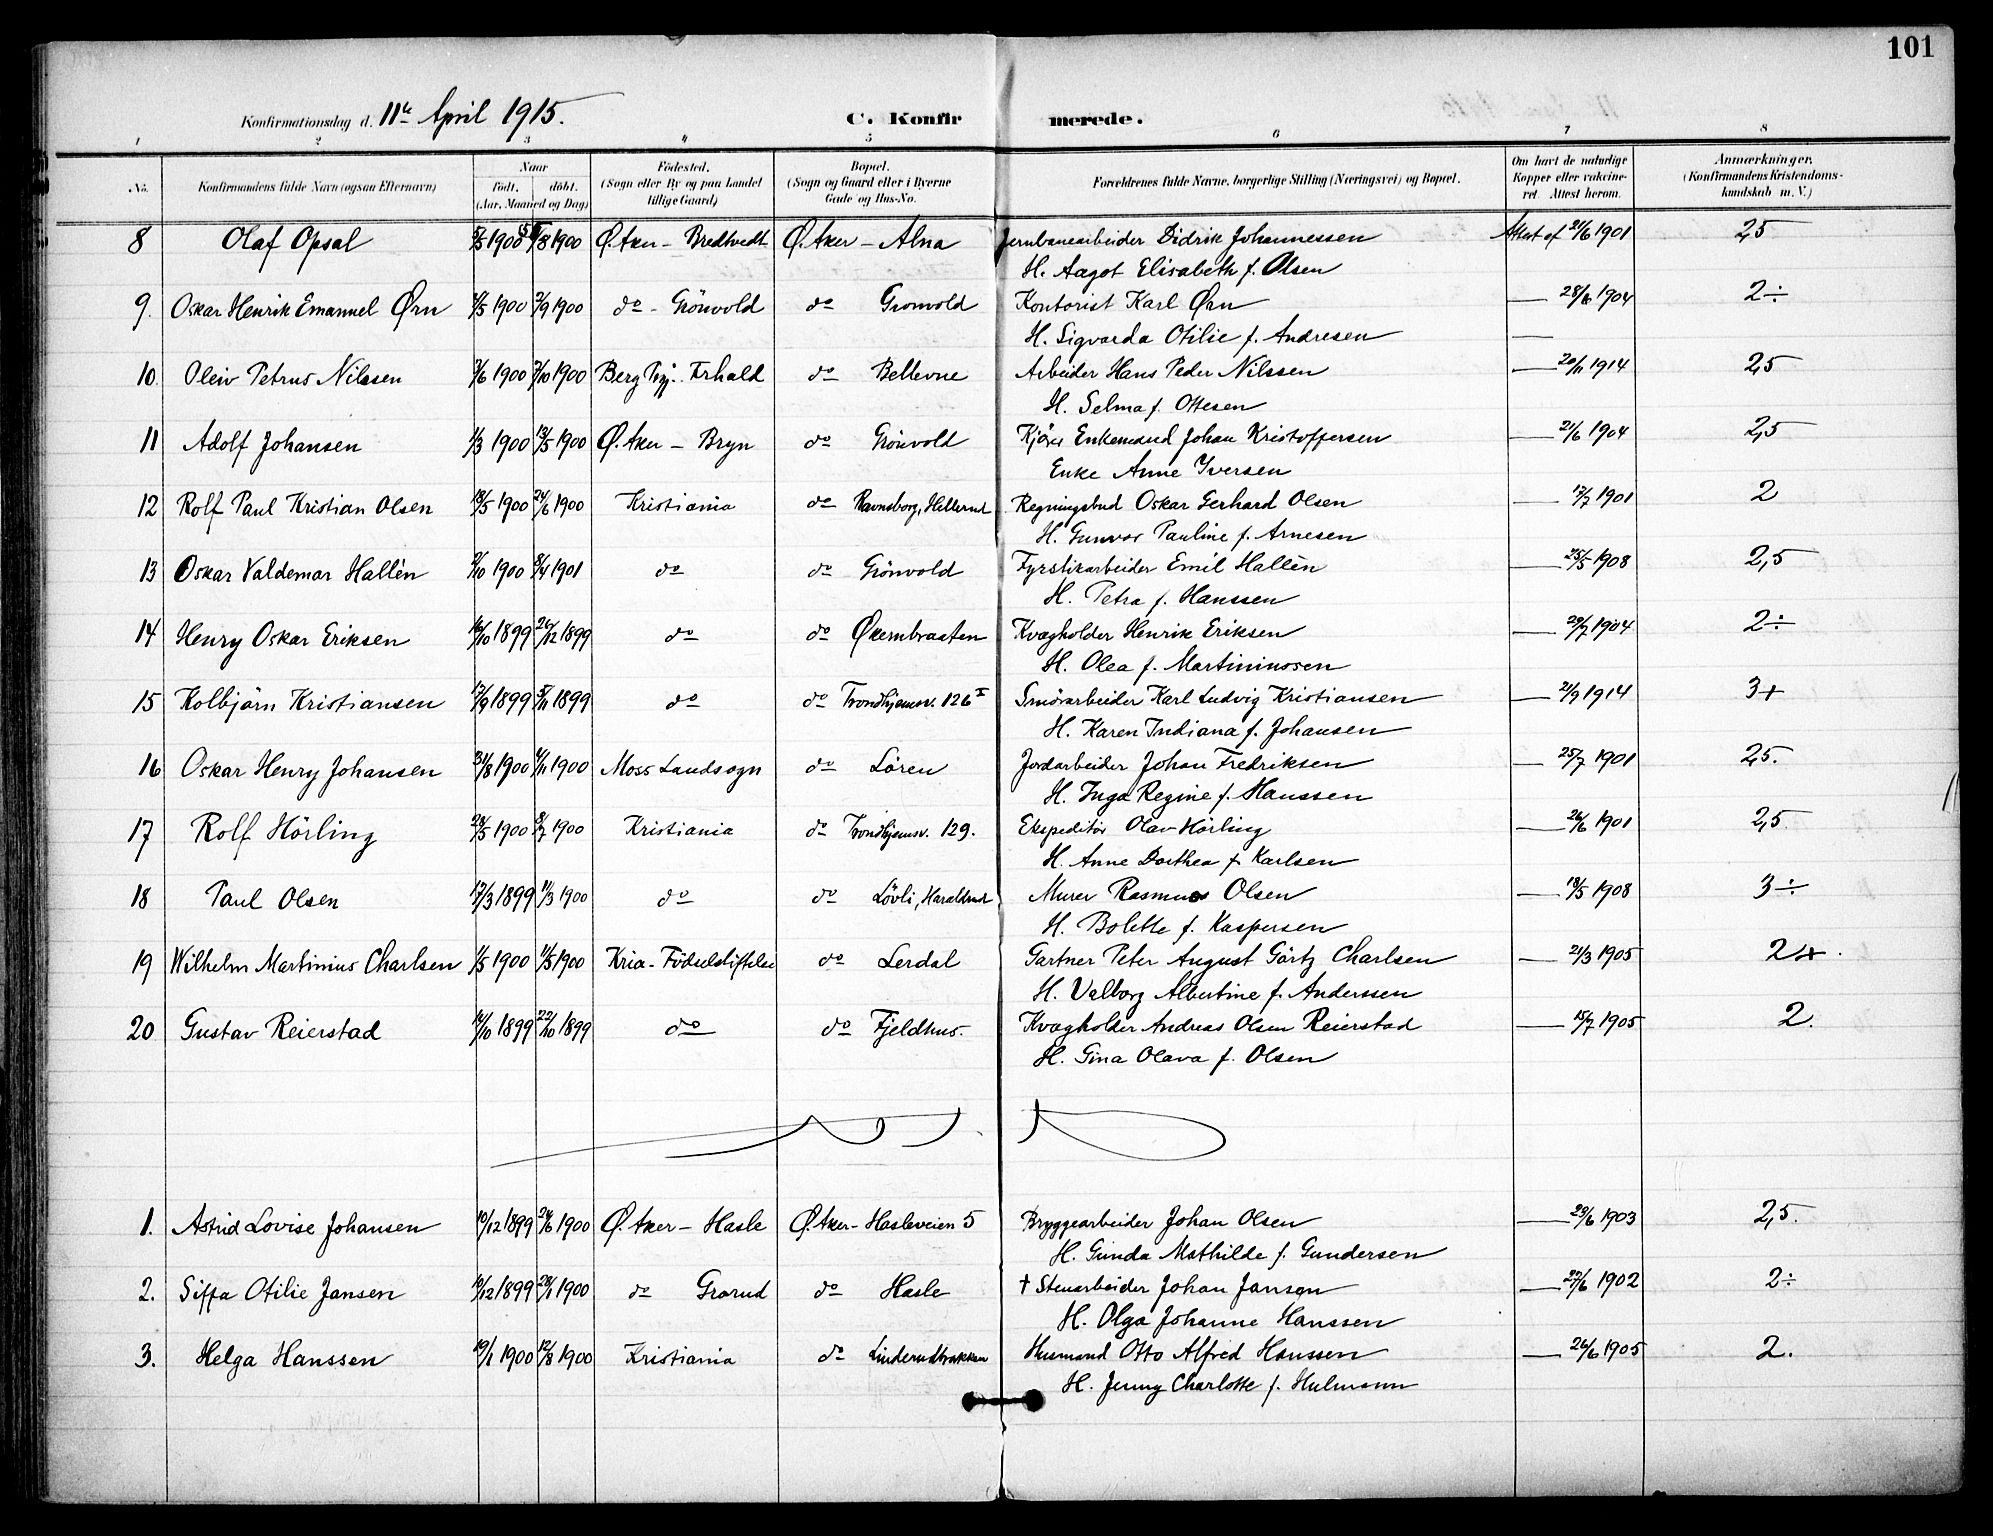 101
Konfirmationsdag d. 11te April 1915.
C. Konfirmerede.
1 2 3 4 5 6 7 8
No. Konfirmandens fulde Navn (ogsaa Efternavn) Naar Födt. döbt. (Aar, Maaned og Dag) Födested. (Sogn eller By og paa Landet tillige Gaard) Bopæl. (Sogn og Gaard eller i Byerne Gade og Hus-No. Forældrenes fulde Navne, borgerlige Stilling (Næringsvei) og Bopæl. Om havt de naturlige Kopper eller vakcineret. Attest herom. Anmærkninger. (Konfirmandens Kristendomskundskab m. V.)
8 Olaf Opsal 1900 1900 Ø. Aker - Bredtvedt Ø. Aker - Alna Jernbanearbeider Didrik Johannessen Attest af 21/6 1901 2,5
H. Aagot Elisabeth f. Olsen
9. Oskar Henrik Emanuel Ørn 1900 2/9 1900 do - Grönvold do Gronvold Kontorist Karl Ørn — 28/6 1904 2÷
H. Sigvarda Otilie f. Andresen
10. Oleiv Petrus Nilssen 1900 1900 Berg Prgj. do Bellevue Arbeider Hans Peder Nilssen — 20/11 1914 2,5
H. Selma f. Ottesen
11 Adolf Johansen 1/3 1900 13/5 1900 Ø. Aker - Bryn do Grönvold Kjörer Enkemand Johan Kristoffersen — 21/6 1904 2,5
Enke Anne Iversen
12 Rolf Paul Kristian Olsen 18/5 1900 24/6 1900 Kristiania do Ravnsborg, Hellerud Regningsbud Oskar Gerhard Olsen — 17/7 1901 2
H. Gunvor Pauline f. Arnesen
13 Oskar Valdemar Hallén 2/10 1900 8/4 1901 do do Grönvold Fyrstikarbeider Emil Hallén — 25/5 1908 2,5
H. Petra f. Hanssen
14 Henry Oskar Eriksen 16/10 1899 26/12 1899 do do Økernbraaten Kvægholder Henrik Eriksen — 29/7 1904 2÷
H. Olea f. Martiniussen
15 Kolbjörn Kristiansen 17/9 1899 5/11 1899 do do Trondhjemsv. 126 I Smörarbeider Karl Ludvig Kristiansen — 21/9 1914 3+
H. Karen Indiana f. Johansen
16 Oskar Henry Johansen 31/8 1900 4/11 1900 Moss Landsogn do Lören Jordarbeider Johan Fredriksen — 25/7 1901 2,5.
H. Inga Regine f. Hanssen
17 Rolf Hörling 28/5 1900 8/7 1900 Kristiania do Trondhjemsv. 129. Ekspeditör Olav Hörling — 26/6 1901 2,5.
H. Anne Dorthea f. Karlsen
18 Paul Olsen 17/3 1899 11/3 1900 do do Lövli, Haraldrud Murer Rasmus Olsen — 18/5 1908 3÷
H. Bolette f. Kaspersen
19 Wilhelm Martinius Charlsen 1/5 1900 11/5 1900 Kria. Födselsstiftelse do Lerdal Gartner Peter August Görtz Charlsen — 21/3 1905 2+.
H. Valborg Albertine f. Anderssen
20. Gustav Reierstad 14/10 1899 22/10 1899 do do Fjeldhus. Kvægholder Andreas Olsen Reierstad — 15/7 1905 2.
H. Gina Olava f. Olsen
1. Astrid Lovise Johansen 10/12 1899 24/6 1900 Ø. Aker - Hasle Ø. Aker - Hasleveien 5 Bryggearbeider Johan Olsen — 23/6 1903 2,5.
H. Gunda Mathilde f. Gundersen
2. Siffa Otilie Jansen 10/12 1899 28/1 1900 do Grorud do Hasle † Stenarbeider Johan Jansen — 27/6 1902 2÷
H. Olga Johanne Hanssen
3. Helga Hanssen 19/1 1900 12/8 1900 Kristiania do Linderudbakken Husmand Otto Alfred Hanssen — 26/6 1905 2.
H. Jenny Charlotte f. Hulmann